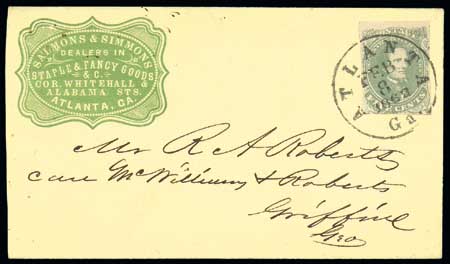 SALMONS & SIMMONS
DEALERS IN
STAPLE & FANCY GOODS
& C.
COR. WHITEHALL &
ALABAMA STS.
ATLANTA, GA.
ATLANTA
FEB
Ga
CENTS
Mr R A Roberts
care McWilliams & Roberts
Griffine
Geo